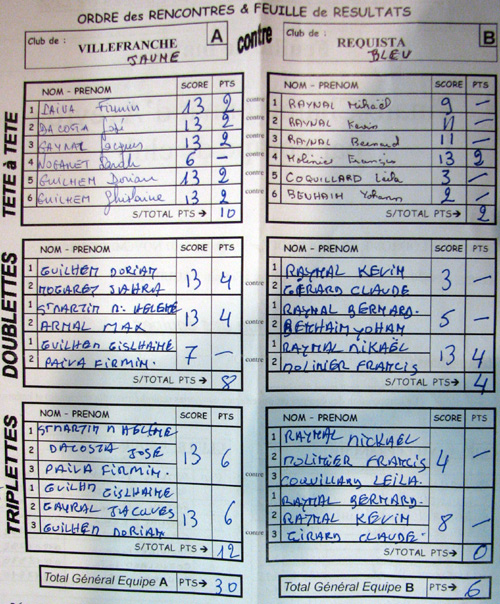 ORDRE des RENCONTRES & FEUILLE de RESULTATS
Club de : VILLEFRANCHE JAUNE A contre Club de : REQUISTA BLEU B
TETE à TETE
NOM - PRENOM SCORE PTS NOM - PRENOM SCORE PTS
1 PAIVA Firmin 13 2 contre 1 RAYNAL Mikaël 9 —
2 DACOSTA José 13 2 contre 2 RAYNAL Kevin 11 —
3 GAYRAL Jacques 13 2 contre 3 RAYNAL Bernard 11 —
4 NOGARET 6 — contre 4 Molinier François 13 2
5 GUILHEM Dorian 13 2 contre 5 COQUILLARD Leila 3 —
6 GUILHEM Ghislaine 13 2 contre 6 BENHAIM Yohann 2 —
S/TOTAL PTS→ 10 S/TOTAL PTS→ 2
DOUBLETTES
NOM - PRENOM SCORE PTS NOM - PRENOM SCORE PTS
1 GUILHEM DORIAN 13 4 contre 1 RAYNAL KEVIN 3 —
2 NOGARET SAHRA 2 GÉRARD CLAUDE
1 STMARTIN M. HELENE 13 4 contre 1 RAYNAL BERNARD. 5 —
2 ARNAL MAX 2 BENHAIM YOHAN
1 GUILHEM GISLHAINE 7 — contre 1 RAYNAL MIKAËL 13 4
2 PAIVA FIRMIN. 2 MOLINIER FRANCIS
S/TOTAL PTS→ 8 S/TOTAL PTS→ 4
TRIPLETTES
NOM - PRENOM SCORE PTS NOM - PRENOM SCORE PTS
1 STMARTIN M HELENE 1 RAYNAL MICKAËL
2 DACOSTA JOSÉ 13 6 contre 2 MOLINIER FRANCIS 4 —
3 PAIVA FIRMIN. 3 COQUILLARD LEILA.
1 GUILHM GISLHAINE 1 RAYNAL BERNARD.
2 GAYRAL JACQUES 13 6 contre 2 RAYNAL KEVIN 8 —
3 GUILHEM DORIAN 3 GIRARD CLAUDE
S/TOTAL PTS→ 12 S/TOTAL PTS→ 0
Total Général Equipe A PTS→ 30 Total Général Equipe B PTS→ 6